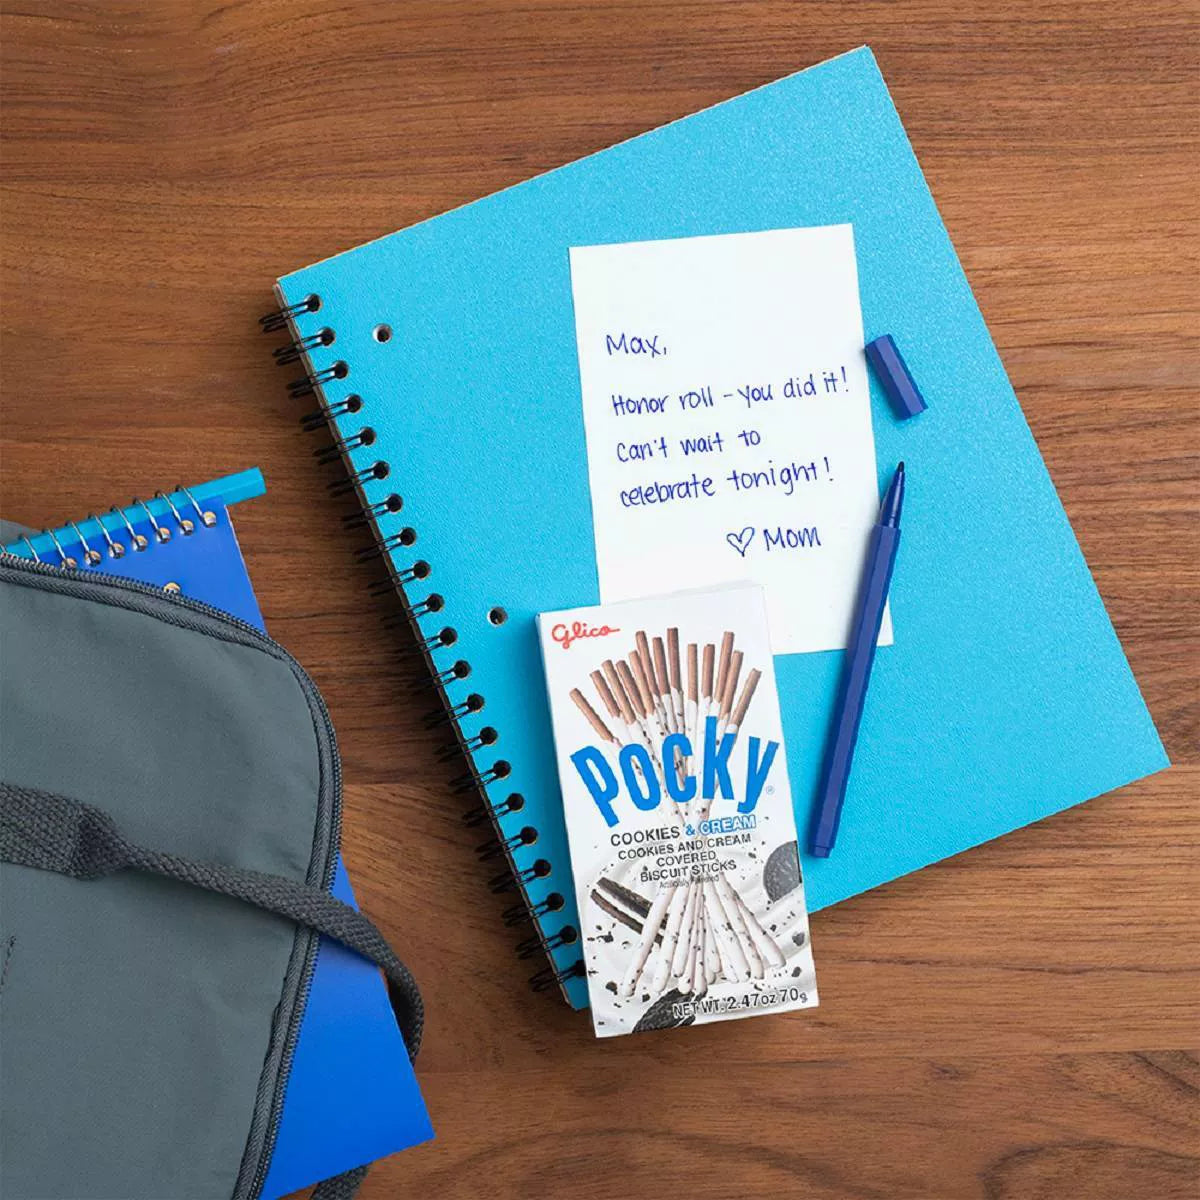 Max,
Honor roll - you did it!
Can't wait to
celebrate tonight!
♡ Mom
Glico
Pocky®
COOKIES & CREAM
COOKIES AND CREAM
COVERED
BISCUIT STICKS
Artificially Flavored
NET WT. 2.47oz 70g